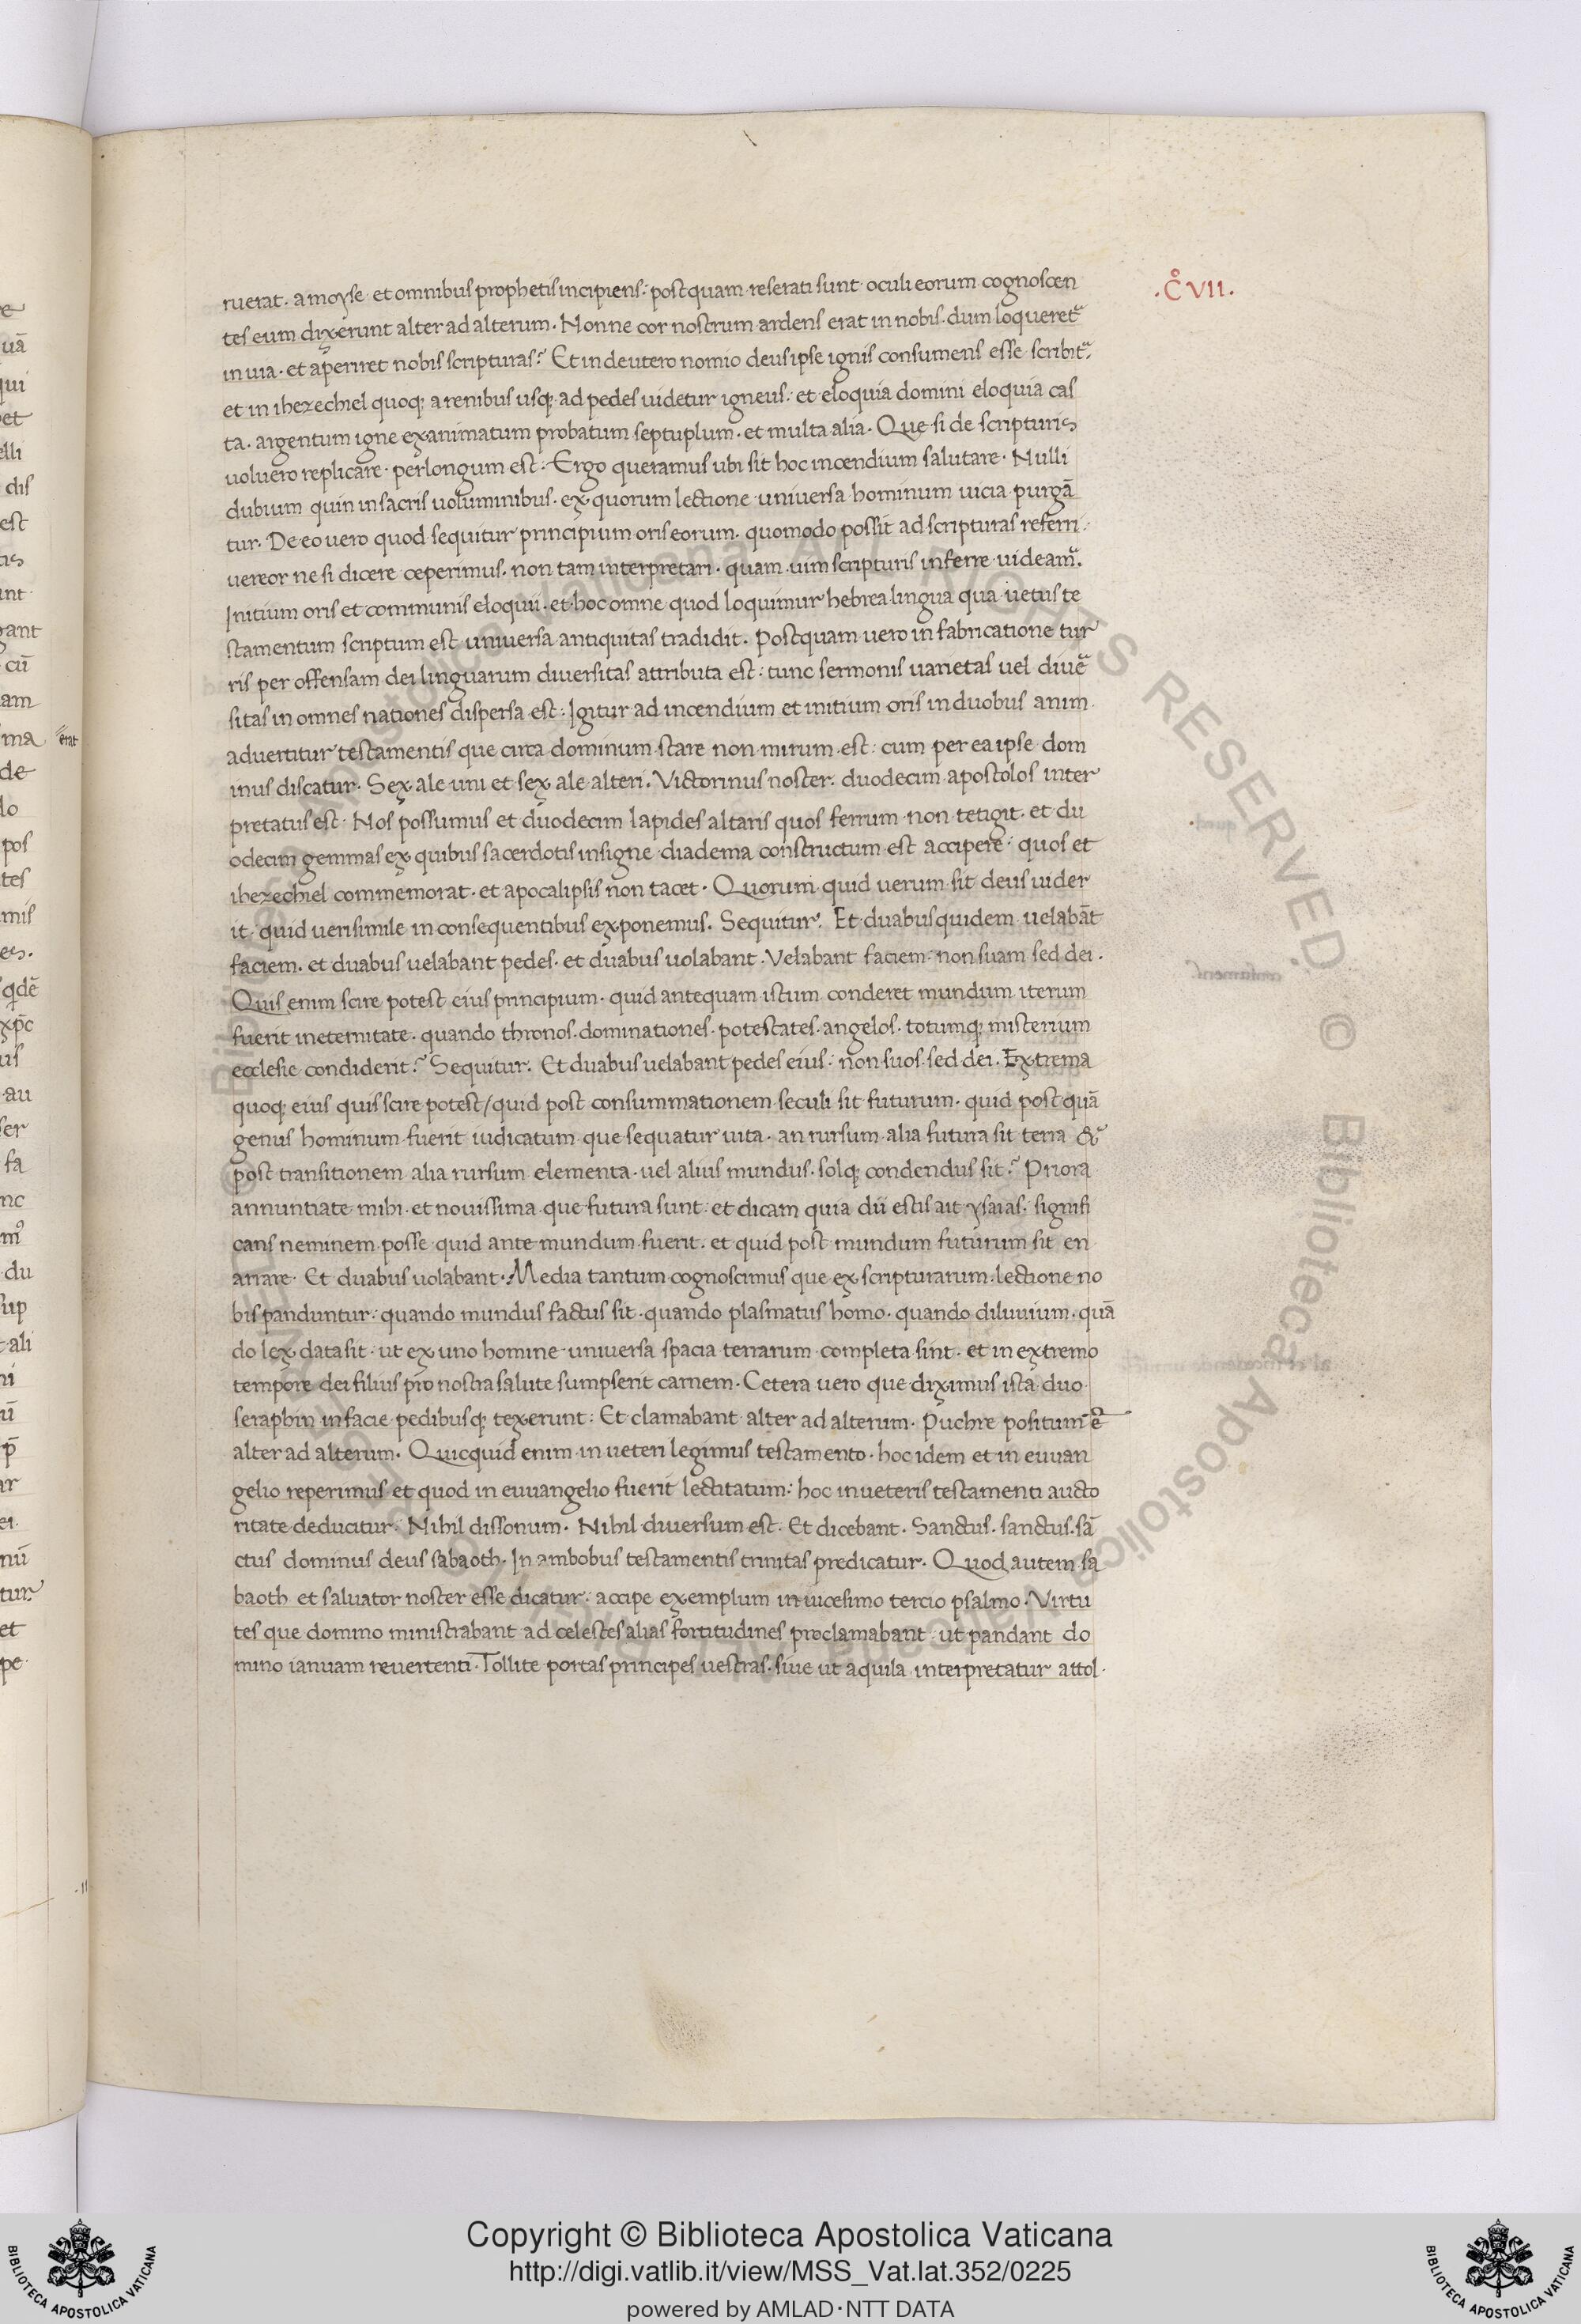 .Cº VII.
ruerat. a moyse et omnibus prophetis incipiens: postquam reserati sunt oculi eorum cognoscen
tes eum dixerunt alter ad alterum. Nonne cor nostrum ardens erat in nobis. dum loqueret᷑
in uia. et aperiret nobis scripturas? Et in deutero nomio deus ipse ignis consumens esse scribit᷑.
et in ihezechiel quoq; a renibus usq; ad pedes uidetur igneus: et eloquia domini eloquia cas
ta. argentum igne exanimatum probatum septuplum. et multa alia. Que si de scripturis
uoluero replicare. perlongum est: Ergo queramus ubi sit hoc incendium salutare. Nulli
dubium quin in sacris uoluminibus. ex quorum lectione uniuersa hominum uicia purgā
tur. De eo uero quod sequitur principium oris eorum. quomodo possit ad scripturas referri.
uereor ne si dicere ceperimus. non tam interpretari. quam uim scripturis inferre uideam᷑.
Initium oris et communis eloquii. et hoc omne quod loquimur hebrea lingua qua uetus te
stamentum scriptum est uniuersa antiquitas tradidit. Postquam uero in fabricatione tur
ris per offensam dei linguarum diuersitas attributa est: tunc sermonis uarietas uel diue᷑
sitas in omnes nationes dispersa est: Igitur ad incendium et initium oris in duobus anim
aduertitur testamentis que circa dominum stare non mirum est: cum per ea ipse dom
inus discatur. Sex ale uni et sex ale alteri. Victorinus noster. duodecim apostolos inter
pretatus est. Nos possumus et duodecim lapides altaris quos ferrum non tetigit. et du
odecim gemmas ex quibus sacerdotis insigne diadema constructum est accipere: quos et
ihezechiel commemorat. et apocalipsis non tacet. Quorum quid uerum sit deus uider
it. quid uerisimile in consequentibus exponemus. Sequitur. Et duabus quidem uelabāt
faciem. et duabus uelabant pedes. et duabus uolabant. Velabant faciem: non suam sed dei.
Quis enim scire potest eius principium. quid antequam istum conderet mundum iterum
fuerit in eternitate. quando thronos. dominationes. potestates. angelos. totumq; misterium
ecclesie condiderit? Sequitur. Et duabus uelabant pedes eius: non suos. sed dei. Extrema
quoq; eius quis scire potest/ quid post consummationem seculi sit futurum. quid postquā
genus hominum fuerit iudicatum que sequatur uita. an rursum alia futura sit terra &
post transitionem alia rursum elementa. uel alius mundus. solq; condendus sit? Priora
annuntiate mihi. et nouissima que futura sunt: et dicam quia dii estis ait ysaias. signifi
cans neminem posse quid ante mundum fuerit. et quid post mundum futurum sit en
arrare. Et duabus uolabant. Media tantum cognoscimus que ex scripturarum lectione no
bis panduntur: quando mundus factus sit. quando plasmatus homo. quando diluuium. quā
do lex data sit. ut ex uno homine uniuersa spacia terrarum completa sint. et in extremo
tempore dei filius pro nostra salute sumpserit carnem. Cetera uero que diximus ista duo
seraphin in facie pedibusq; texerunt: Et clamabant alter ad alterum. Puchre positum ē
alter ad alterum. Quicquid enim in ueteri legimus testamento. hoc idem et in euuan
gelio reperimus et quod in euuangelio fuerit lectitatum: hoc in ueteris testamenti aucto
ritate deducitur. Nihil dissonum. Nihil diuersum est. Et dicebant. Sanctus. sanctus. sā
ctus dominus deus sabaoth. In ambobus testamentis trinitas predicatur. Quod autem sa
baoth et saluator noster esse dicatur: accipe exemplum in uicesimo tercio psalmo. Virtu
tes que domino ministrabant ad celestes alias fortitudines proclamabant ut pandant do
mino ianuam reuertenti. Tollite portas principes uestras. siue ut aquila interpretatur attol
Copyright © Biblioteca Apostolica Vaticana
http://digi.vatlib.it/view/MSS_Vat.lat.352/0225
powered by AMLAD·NTT DATA
BIBLIOTECA APOSTOLICA VATICANA
BIBLIOTECA APOSTOLICA VATICANA